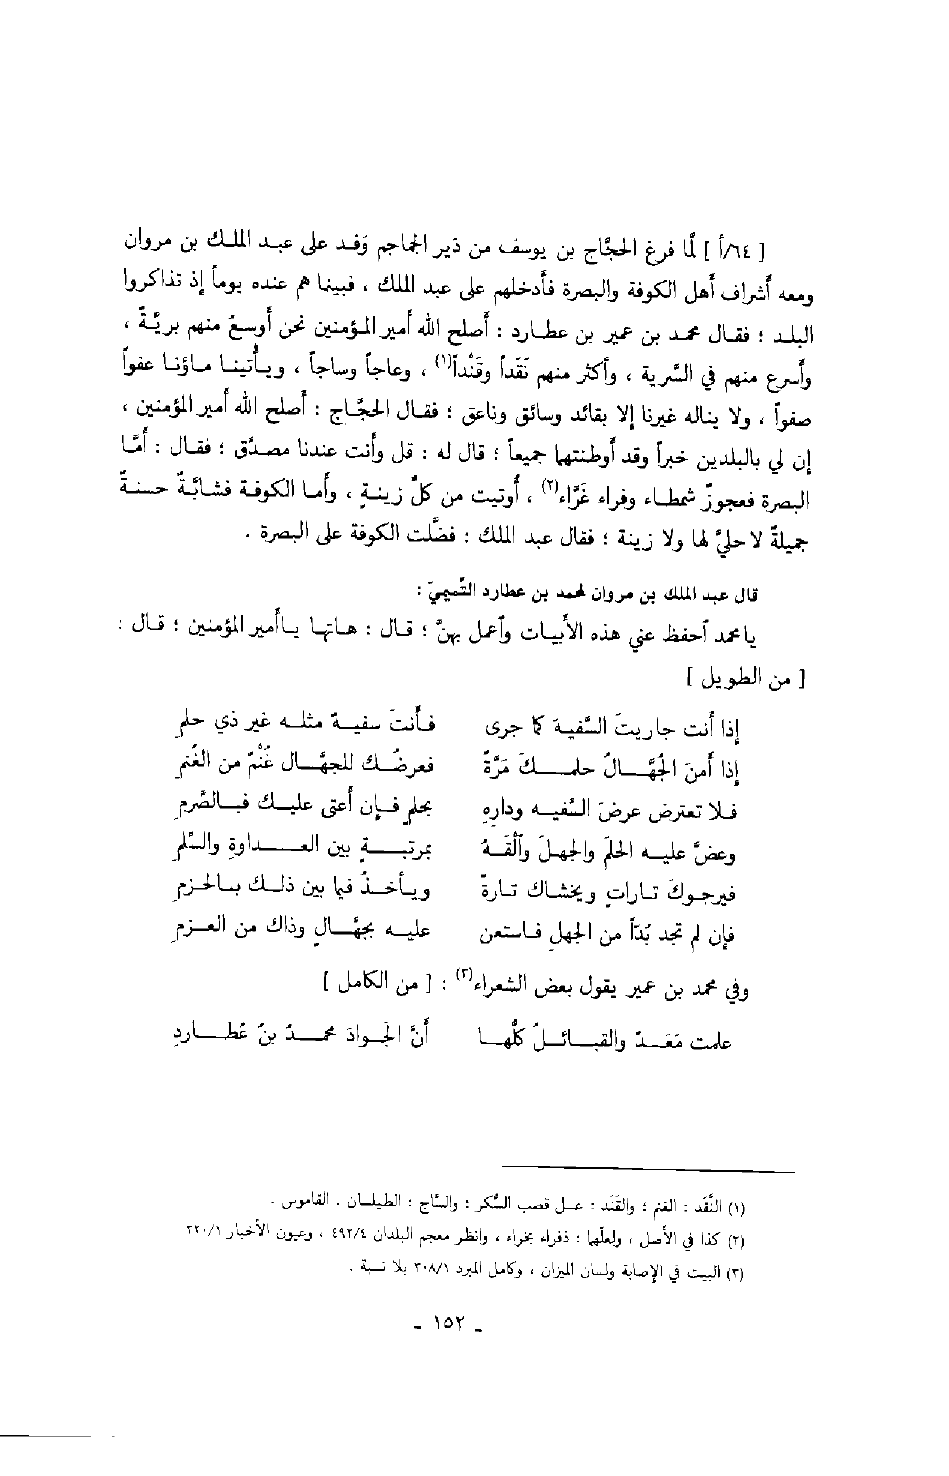 [ ٦٤/أ ] لمّا فرغ الحجّاج بن يوسف من دَير الجماجم وَفد على عبد الملك بن مروان
ومعه أشراف أهل الكوفة والبصرة فأدخلهم على عبد الملك ، فبينا هم عنده يوماً إذ تذاكروا
البلد ؛ فقال محمد بن عمير بن عطارد : أصلح الله أمير المؤمنين نحن أوسعُ منهم بريّةً ،
وأسرع منهم في السَّرية ، وأكثر منهم نَقَداً وقَنْداً(١) ، وعاجاً وساجاً ، ويأتينا ماؤنا عفواً
صفواً ، ولا يناله غيرنا إلا بقائد وسائق وناعق ؛ فقال الحجّاج : أصلح الله أمير المؤمنين ،
إن لي بالبلدين خبراً وقد أوطنتها جميعاً ؛ قال له : قل وأنت عندنا مصدّق ؛ فقال : أمّا
البصرة فعجوزٌ شمطاء وفراء غرّاء(٢) ، أوتيت من كلّ زينةٍ ، وأما الكوفة فشابّةٌ حسنةٌ
جميلةٌ لا حليَّ لها ولا زينة ؛ فقال عبد الملك : فضّلت الكوفة على البصرة .
قال عبد الملك بن مروان لمحمد بن عطارد التَّميميّ :
يا محمد أحفظ عني هذه الأبيات وأعمل بهنّ ؛ قال : هاتها يا أمير المؤمنين ؛ قال :
[ من الطويل ]
إذا أنت جاريتَ السَّفيهَ كما جرى فأنتَ سفيهٌ مثله غير ذي حلمِ
إذا أمنَ الجُهّالُ حلمك مَرّةً فعرضُك للجهّال غُنْمٌ من الغُنمِ
فلا تعترض عرضَ السَّفيه ودارهِ بحلمٍ فإن أعتى عليك فبالصَّرمِ
وعضَّ عليه الحلمَ والجهلَ وألقَهُ بمرتبةٍ بين العداوةِ والسَّلمِ
فيرجوكَ تاراتٍ ويخشاك تارةً ويأخذُ فيما بين ذلك بالحزمِ
فإن لم تجد بُدّاً من الجهلِ فاستعن عليه بجهّالٍ وذاك من العزمِ
وفي محمد بن عمير يقول بعض الشعراء(٣) : [ من الكامل ]
علمت مَعَدٌّ والقبائلُ كلُّها أنَّ الجوادَ محمدُ بنُ عُطاردِ
(١) النَّقَد : الغنم ؛ والقَنَد : عسل قصب السُّكر ؛ والسَّاج : الطيلسان . القاموس .
(٢) كذا في الأصل ، ولعلّها : ذفراء بخراء ، وانظر معجم البلدان ٤٩٢/٤ ، وعيون الأخبار ٢٢٠/١
(٣) البيت في الإصابة ولسان الميزان ، وكامل المبرد ٣٠٨/١ بلا نسبة .
ـ ١٥٢ ـ